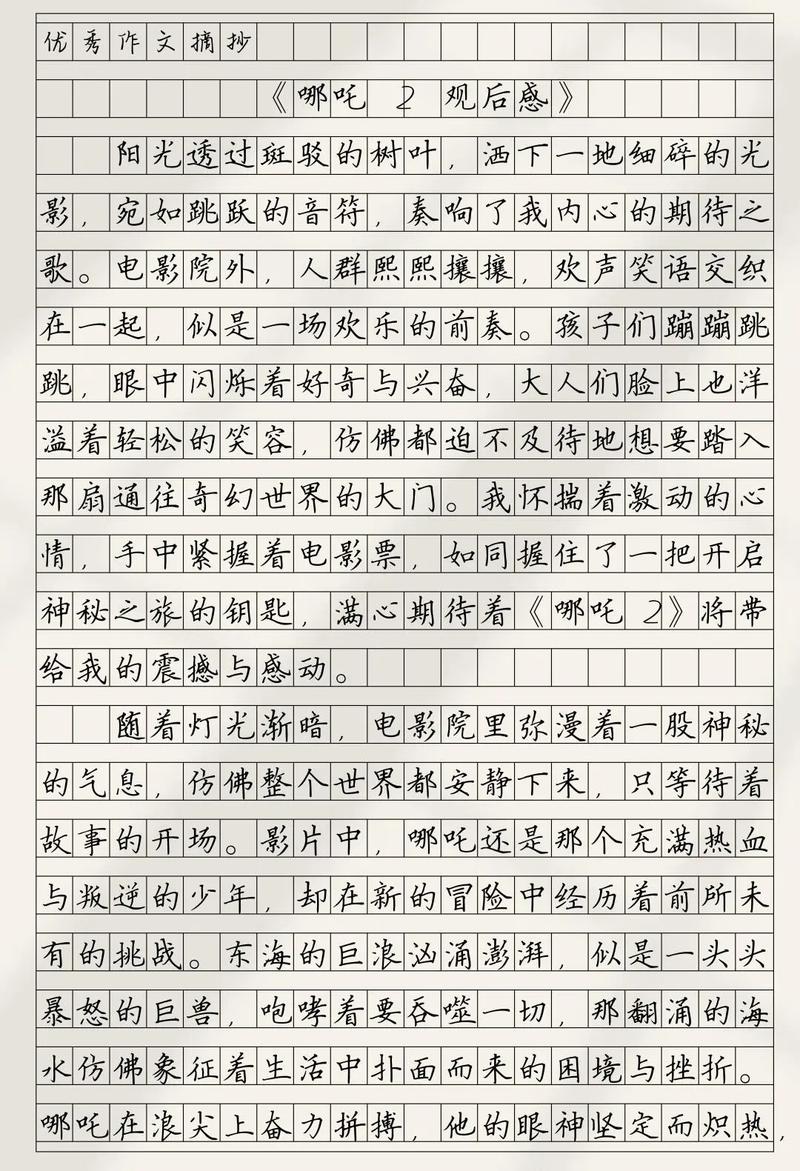 优秀作文摘抄
《哪吒 2 观后感》
阳光透过斑驳的树叶，洒下一地细碎的光
影，宛如跳跃的音符，奏响了我内心的期待之
歌。电影院外，人群熙熙攘攘，欢声笑语交织
在一起，似是一场欢乐的前奏。孩子们蹦蹦跳
跳，眼中闪烁着好奇与兴奋，大人们脸上也洋
溢着轻松的笑容，仿佛都迫不及待地想要踏入
那扇通往奇幻世界的大门。我怀揣着激动的心
情，手中紧握着电影票，如同握住了一把开启
神秘之旅的钥匙，满心期待着《哪吒 2》将带
给我的震撼与感动。
随着灯光渐暗，电影院里弥漫着一股神秘
的气息，仿佛整个世界都安静下来，只等待着
故事的开场。影片中，哪吒还是那个充满热血
与叛逆的少年，却在新的冒险中经历着前所未
有的挑战。东海的巨浪汹涌澎湃，似是一头头
暴怒的巨兽，咆哮着要吞噬一切，那翻涌的海
水仿佛象征着生活中扑面而来的困境与挫折。
哪吒在浪尖上奋力拼搏，他的眼神坚定而炽热，